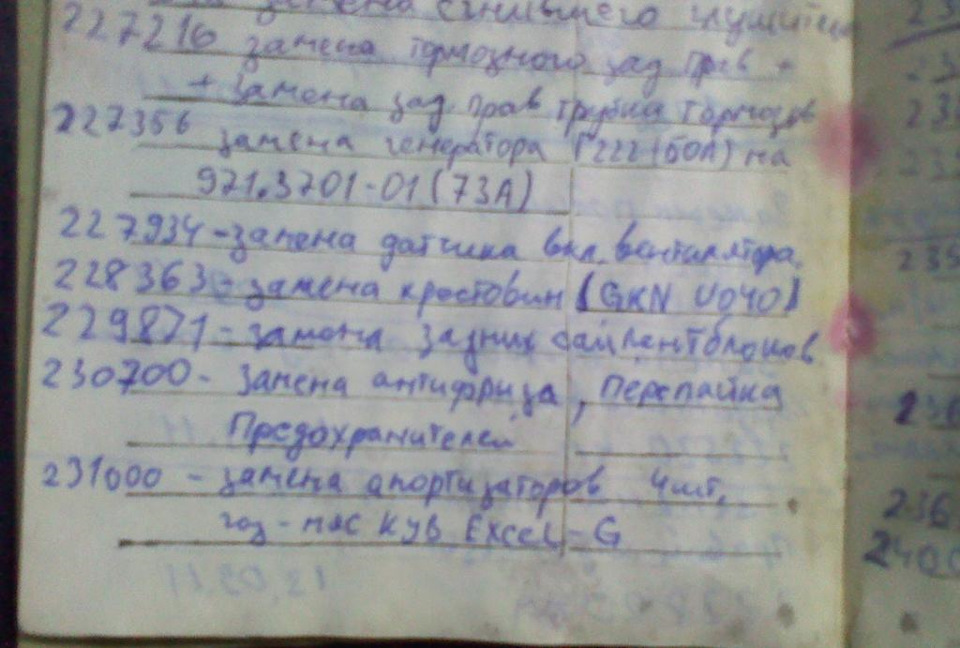 замена сгнившего глушителя
227216 замена тормозного зад прав
+ замена зад. прав трубка тормозов
227356 замена генератора Г222 (50А) на
971.3701-01 (73А)
227934 - замена датчика вкл. вентилятора.
228363 - замена крестовин (GKN U040)
229871 - замена задних сайлентблоков
230700 - замена антифриза, перепайка
предохранителей
231000 - замена амортизаторов 4шт.
газ-мас кув Excel-G
235
236
236
2400